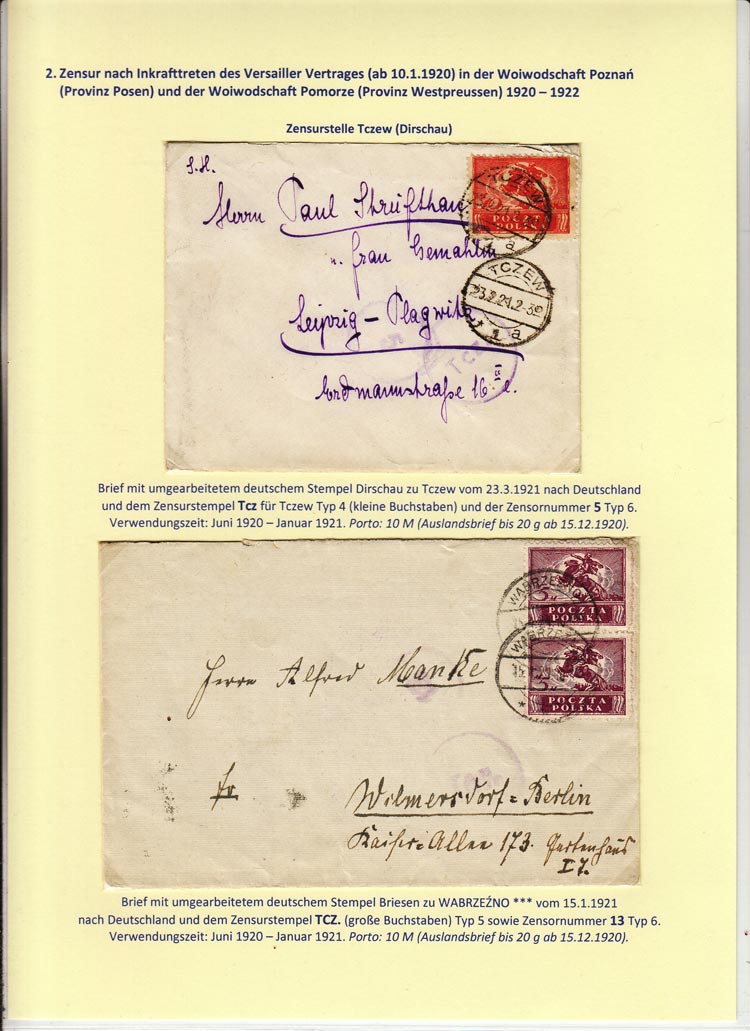 2. Zensur nach Inkrafttreten des Versailler Vertrages (ab 10.1.1920) in der Woiwodschaft Poznań
(Provinz Posen) und der Woiwodschaft Pomorze (Provinz Westpreussen) 1920 – 1922
Zensurstelle Tczew (Dirschau)
S.H.
Herrn Paul
u. Frau Gemahlin
Leipzig – Plagwitz
Erdmannstraße 16
TCZEW
POCZTA
POLSKA
a
TCZEW
1 a
TCZ
Brief mit umgearbeitetem deutschem Stempel Dirschau zu Tczew vom 23.3.1921 nach Deutschland
und dem Zensurstempel Tcz für Tczew Typ 4 (kleine Buchstaben) und der Zensornummer 5 Typ 6.
Verwendungszeit: Juni 1920 – Januar 1921. Porto: 10 M (Auslandsbrief bis 20 g ab 15.12.1920).
WABRZEŹNO
POCZTA
POLSKA
WABRZEŹ
5
POCZTA
POLSKA
Herrn Alfred Manke
Wilmersdorf=Berlin
Kaiser-Allee 173. Gartenhaus
Brief mit umgearbeitetem deutschem Stempel Briesen zu WABRZEŹNO *** vom 15.1.1921
nach Deutschland und dem Zensurstempel TCZ. (große Buchstaben) Typ 5 sowie Zensornummer 13 Typ 6.
Verwendungszeit: Juni 1920 – Januar 1921. Porto: 10 M (Auslandsbrief bis 20 g ab 15.12.1920).